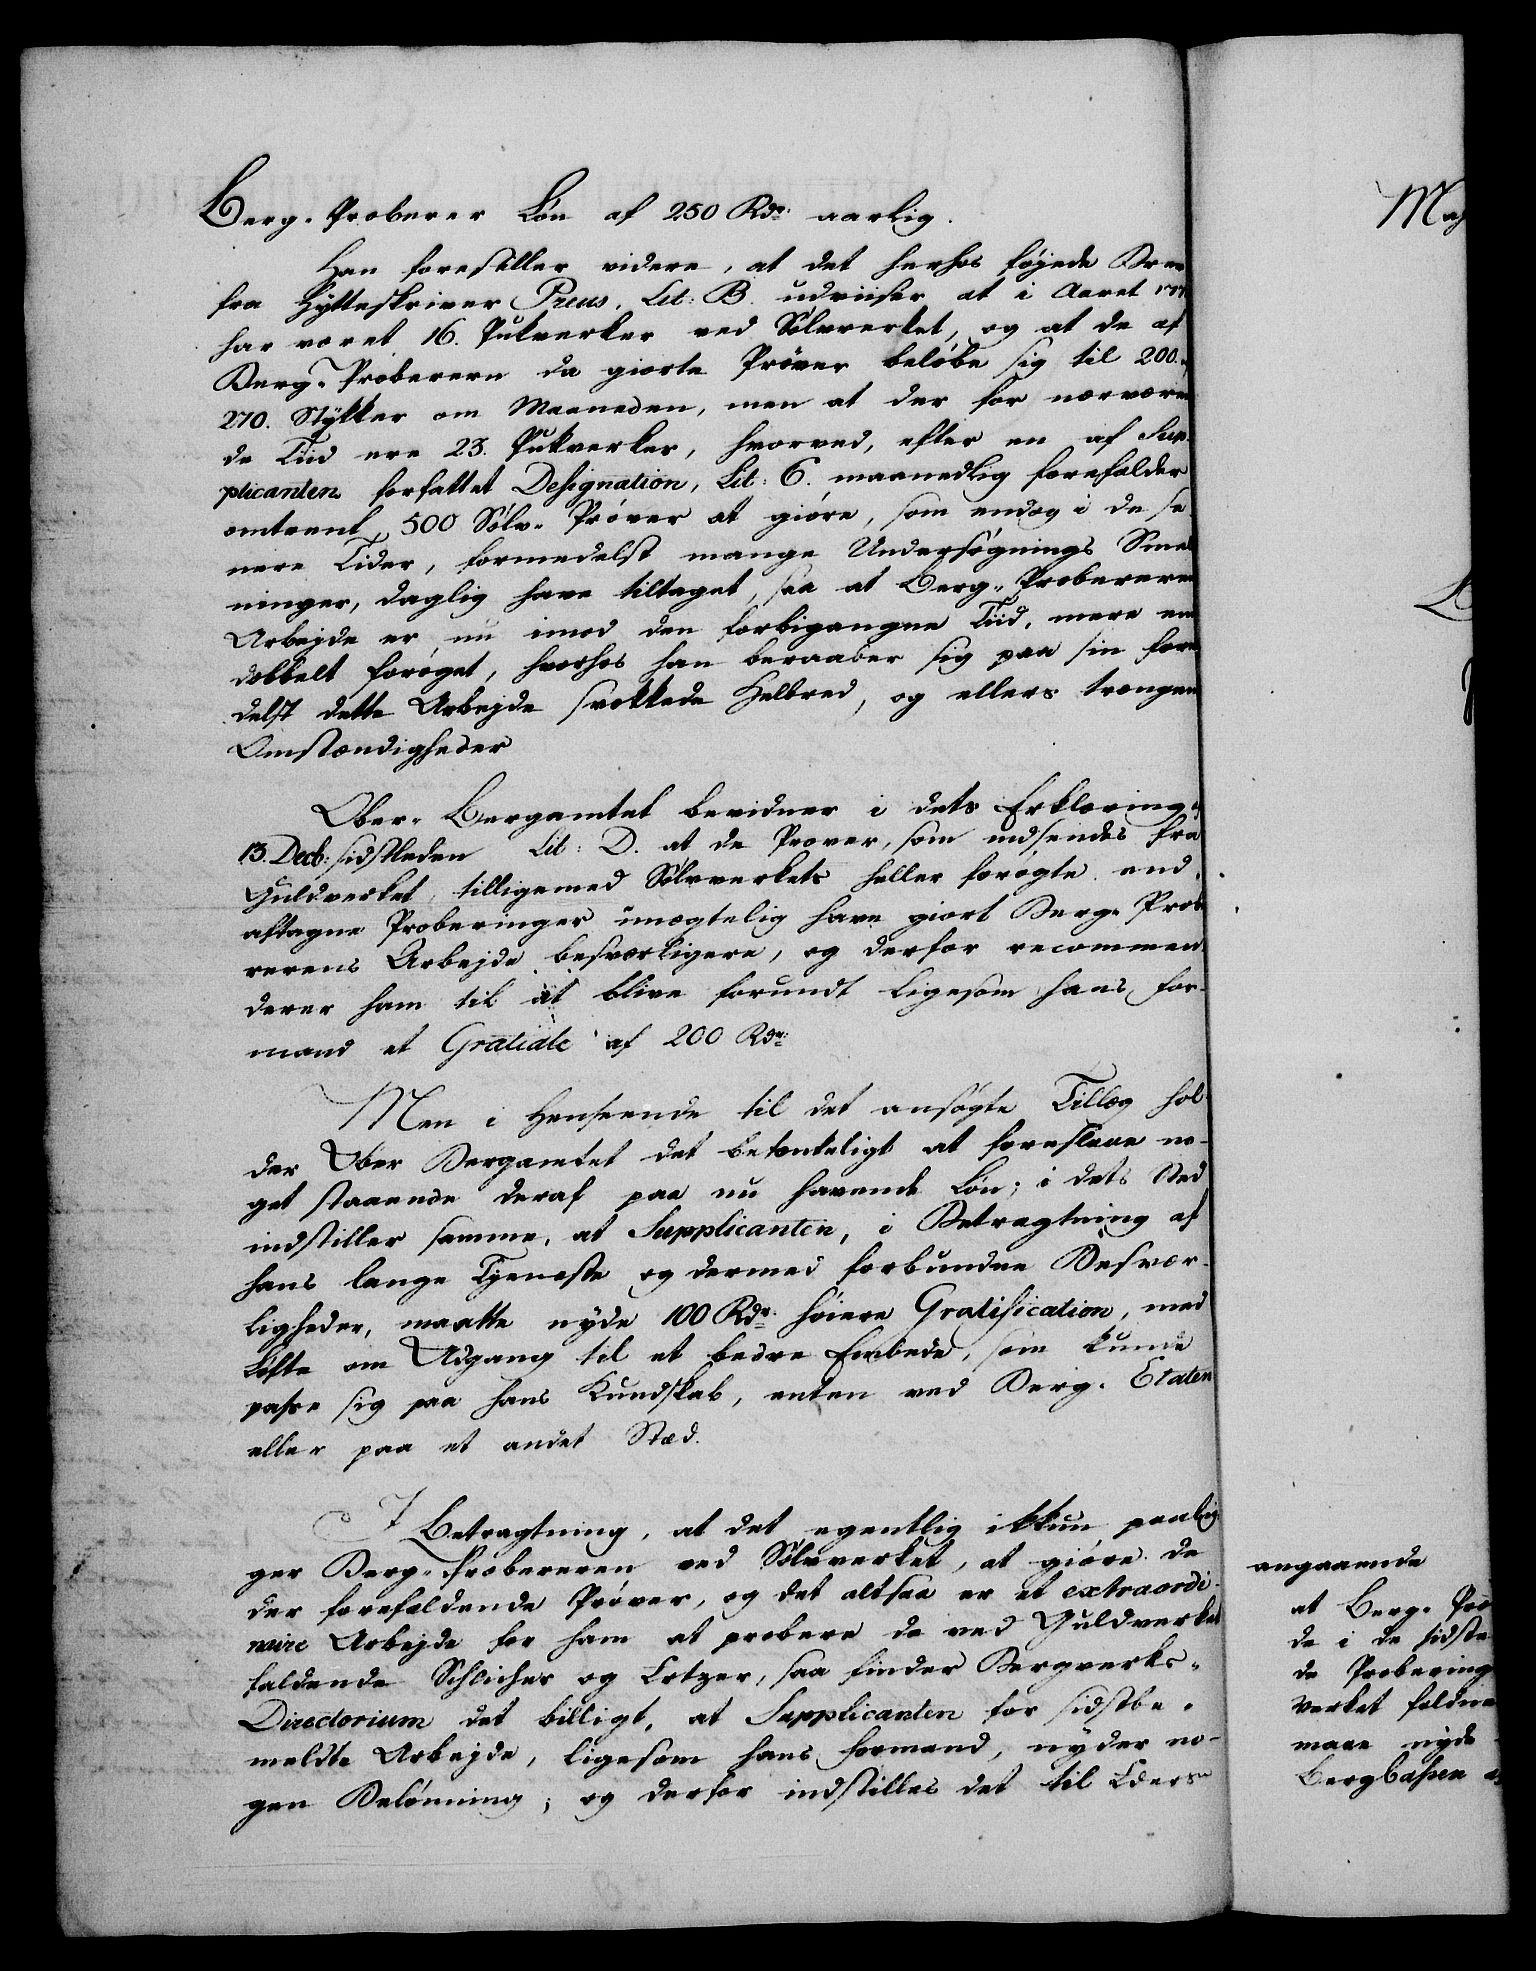 Berg-Proberer Løn af 250 Rdr. aarlig.
Han forestiller videre, at det herhos føjede Brev
fra Hytteskriver Preus, Lit: B. udviiser at i Aaret
har været 16. Pukverker ved Sølvverket, og at de af
Berg-Probereren da giorte Prøver beløbe sig til 200. a
270. Stykker om Maaneden, men at der for nærværen
de Tiid ere 23. Pukverker, hvorved, efter en af Sup-
plicanten forfattet Designation, Lit: C. maanedlig forefalder
omtrent 500 Sølv-Prøver at giøre, som endog i de se-
nere Tider, formedelst mange Undersøgnings Smelt
ninger, daglig have tiltaget, saa at Berg-Probererens
Arbejde er nu imod den forbigangne Tiid, mere end
dobbelt forøget, hvorhos han beraaber sig paa sin forme
delst dette Arbejde svækkede Helbred, og ellers trængende
Omstændigheder
Ober-Bergamtet bevidner i dets Erklæring af
13 Decb: sidstleden Lit: D. at de Prøver, som indsendes fra
Guldverket, tilligemed Sølvverkets heller forøgte end
aftagne Proberinger unægtelig have giort Berg-Probe
rerens Arbejde besværligere, og derfor recommen
derer ham til at blive forundt ligesom hans for-
mand et Gratiale af 200 Rdr:
Men i Henseende til det ansøgte Tillæg hol-
der Ober Bergamtet det betænkeligt at foreslaae no-
get staaende deraf paa nu havende Løn; i dets Sted
indstiller samme, at Supplicanten, i Betragtning af
hans lange Tjeneste og dermed forbundne Besvær-
ligheder, maatte nyde 100 Rdr. høiere Gratification, med
Løfte om Adgang til et bedre Embede, som kunde
passe sig paa hans Kundskab, enten ved Berg-Etaten
eller paa et andet Stæd.
I Betragtning, at det egentlig ikkun paalig-
ger Berg-Probereren ved Sølvverket, at giøre de
der forefaldende Prøver, og det altsaa er et extraordi-
naire Arbejde for ham at probere de ved Guldverket
faldende Schlicher og Ertzer, saa finder Bergverks-
Directorium det billigt, at Supplicanten for sidstbe-
meldte Arbejde, ligesom hans formand, nyder no-
gen Belønning; og derfor indstilles det til
angaaende
at Berg-Pro
de i de sidste
de Probering
verket faldne
maae nyde
Bergcassen